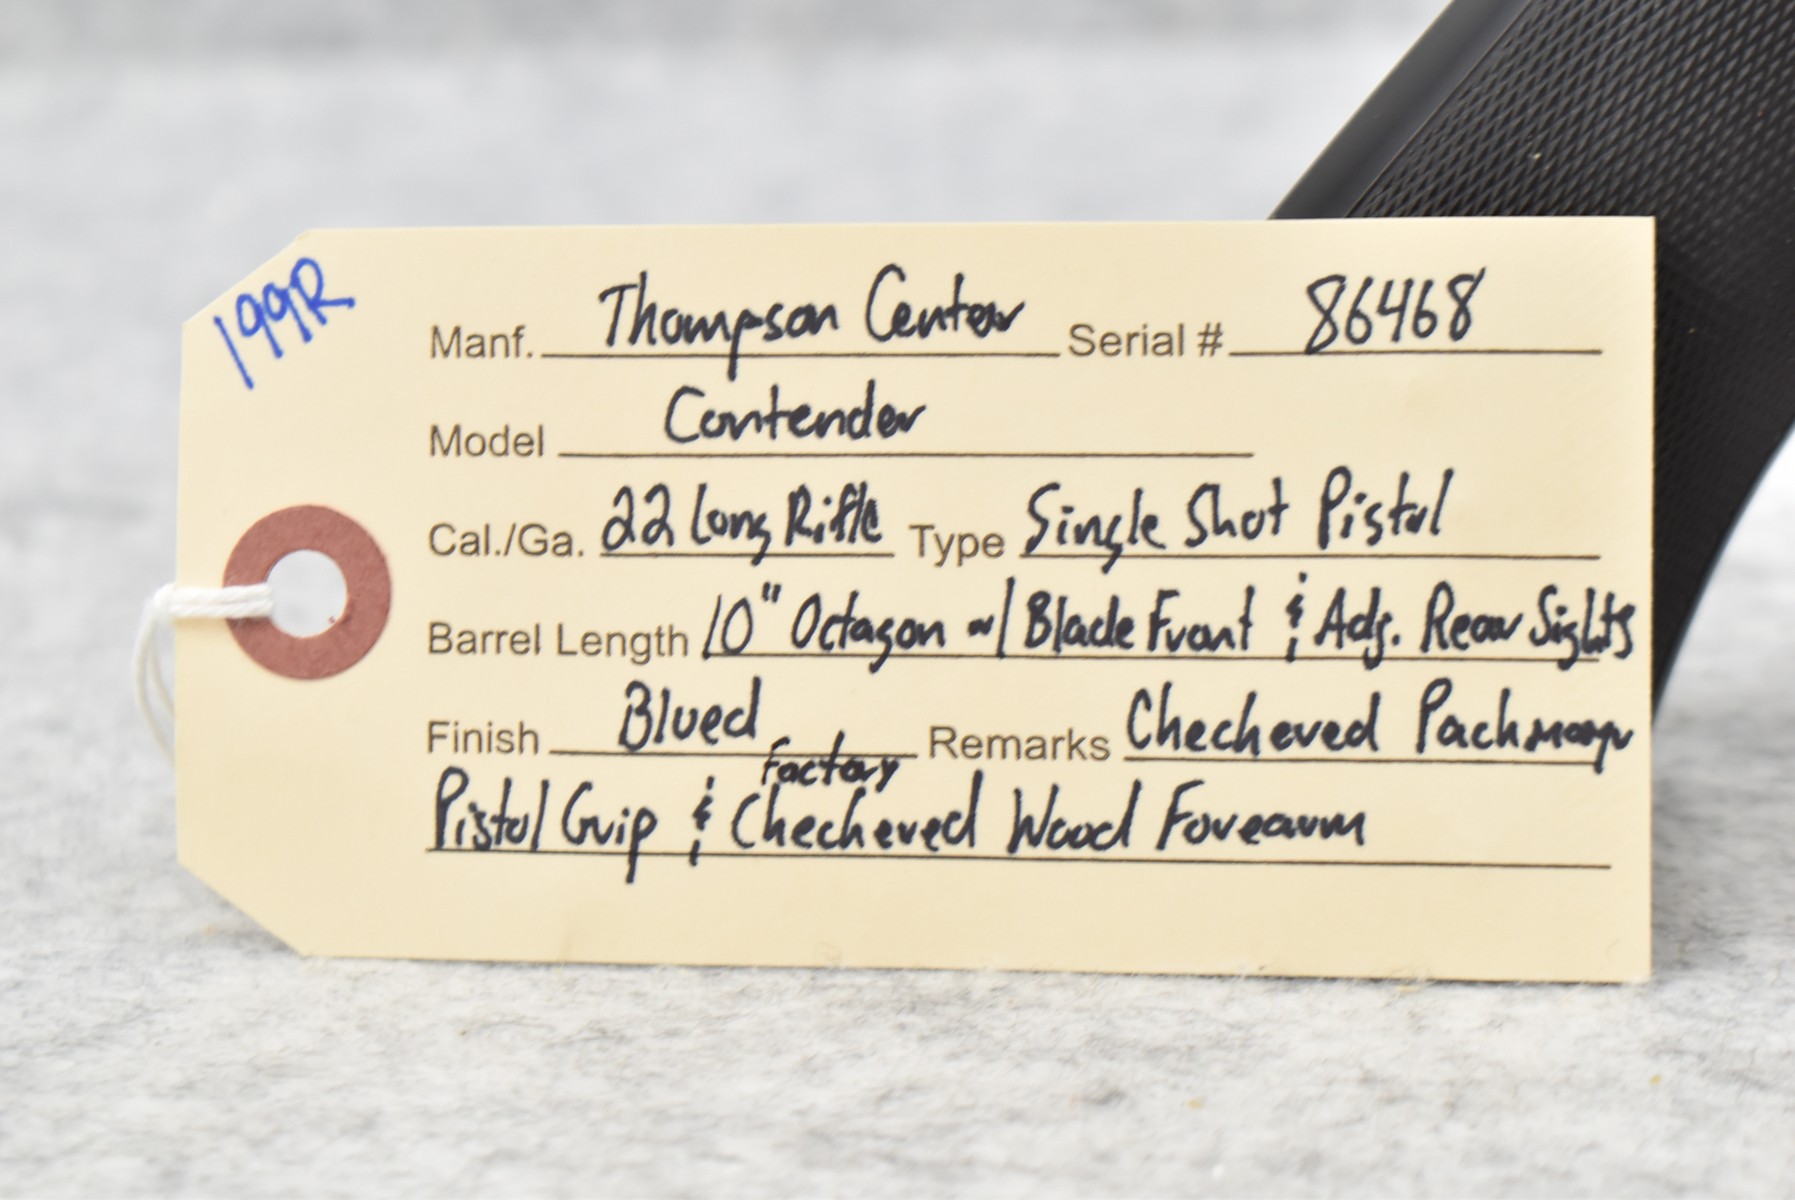 199R
Manf. Thompson Center Serial # 86468
Model Contender
Cal./Ga. 22 Long Rifle Type Single Shot Pistol
Barrel Length 10" Octagon w/ Blade Front & Adj. Rear Sights
Finish Blued Remarks Checkered Pachmayr
Factory
Pistol Grip & Checkered Wood Forearm